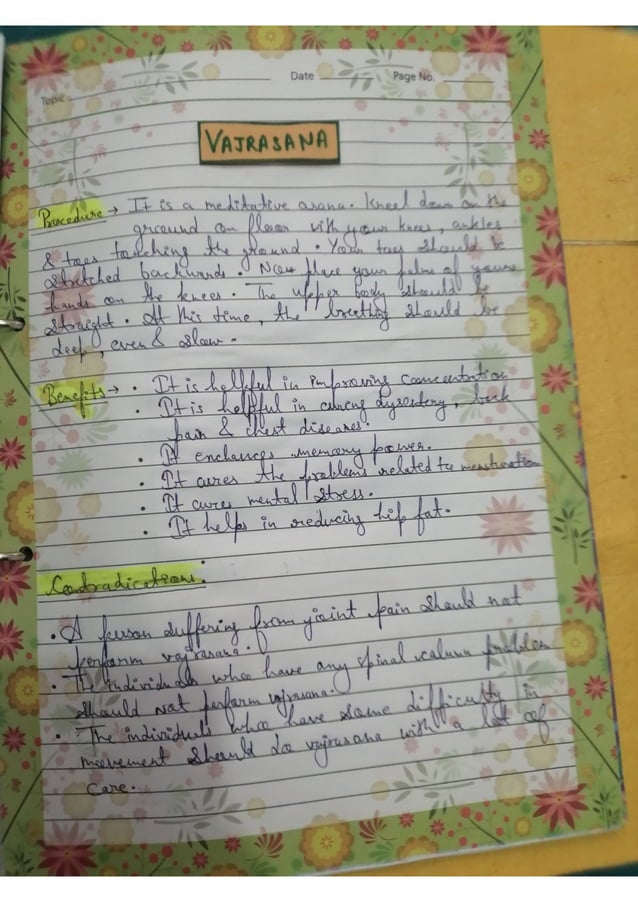 Date Page No.
Topic
VAJRASANA
Procedure → It is a meditative asana. Kneel down on the
ground on floor with your knees, ankles
& toes touching the ground. Your toes should be
stretched backwards. Now place your palms of yours
hands on the knees. The upper body should be
straight. At this time, the breeting should be
deep, even & slow.
Benefits → • It is helpful in improving concentration
• It is helpful in cureng dysentery, back
pain & chest diseases.
• It enchances memory power.
• It cures the problems related to menstruation
• It cures mental stress.
• It helps in reducing hip fat.
Contradications:
• A person suffering from joint pain should not
perform vajrasana.
• The individuals who have any spinal column problem
should not perform vajrasana.
• The individuals who have some difficulty in
movement should do vajrasana with a lot of
care.